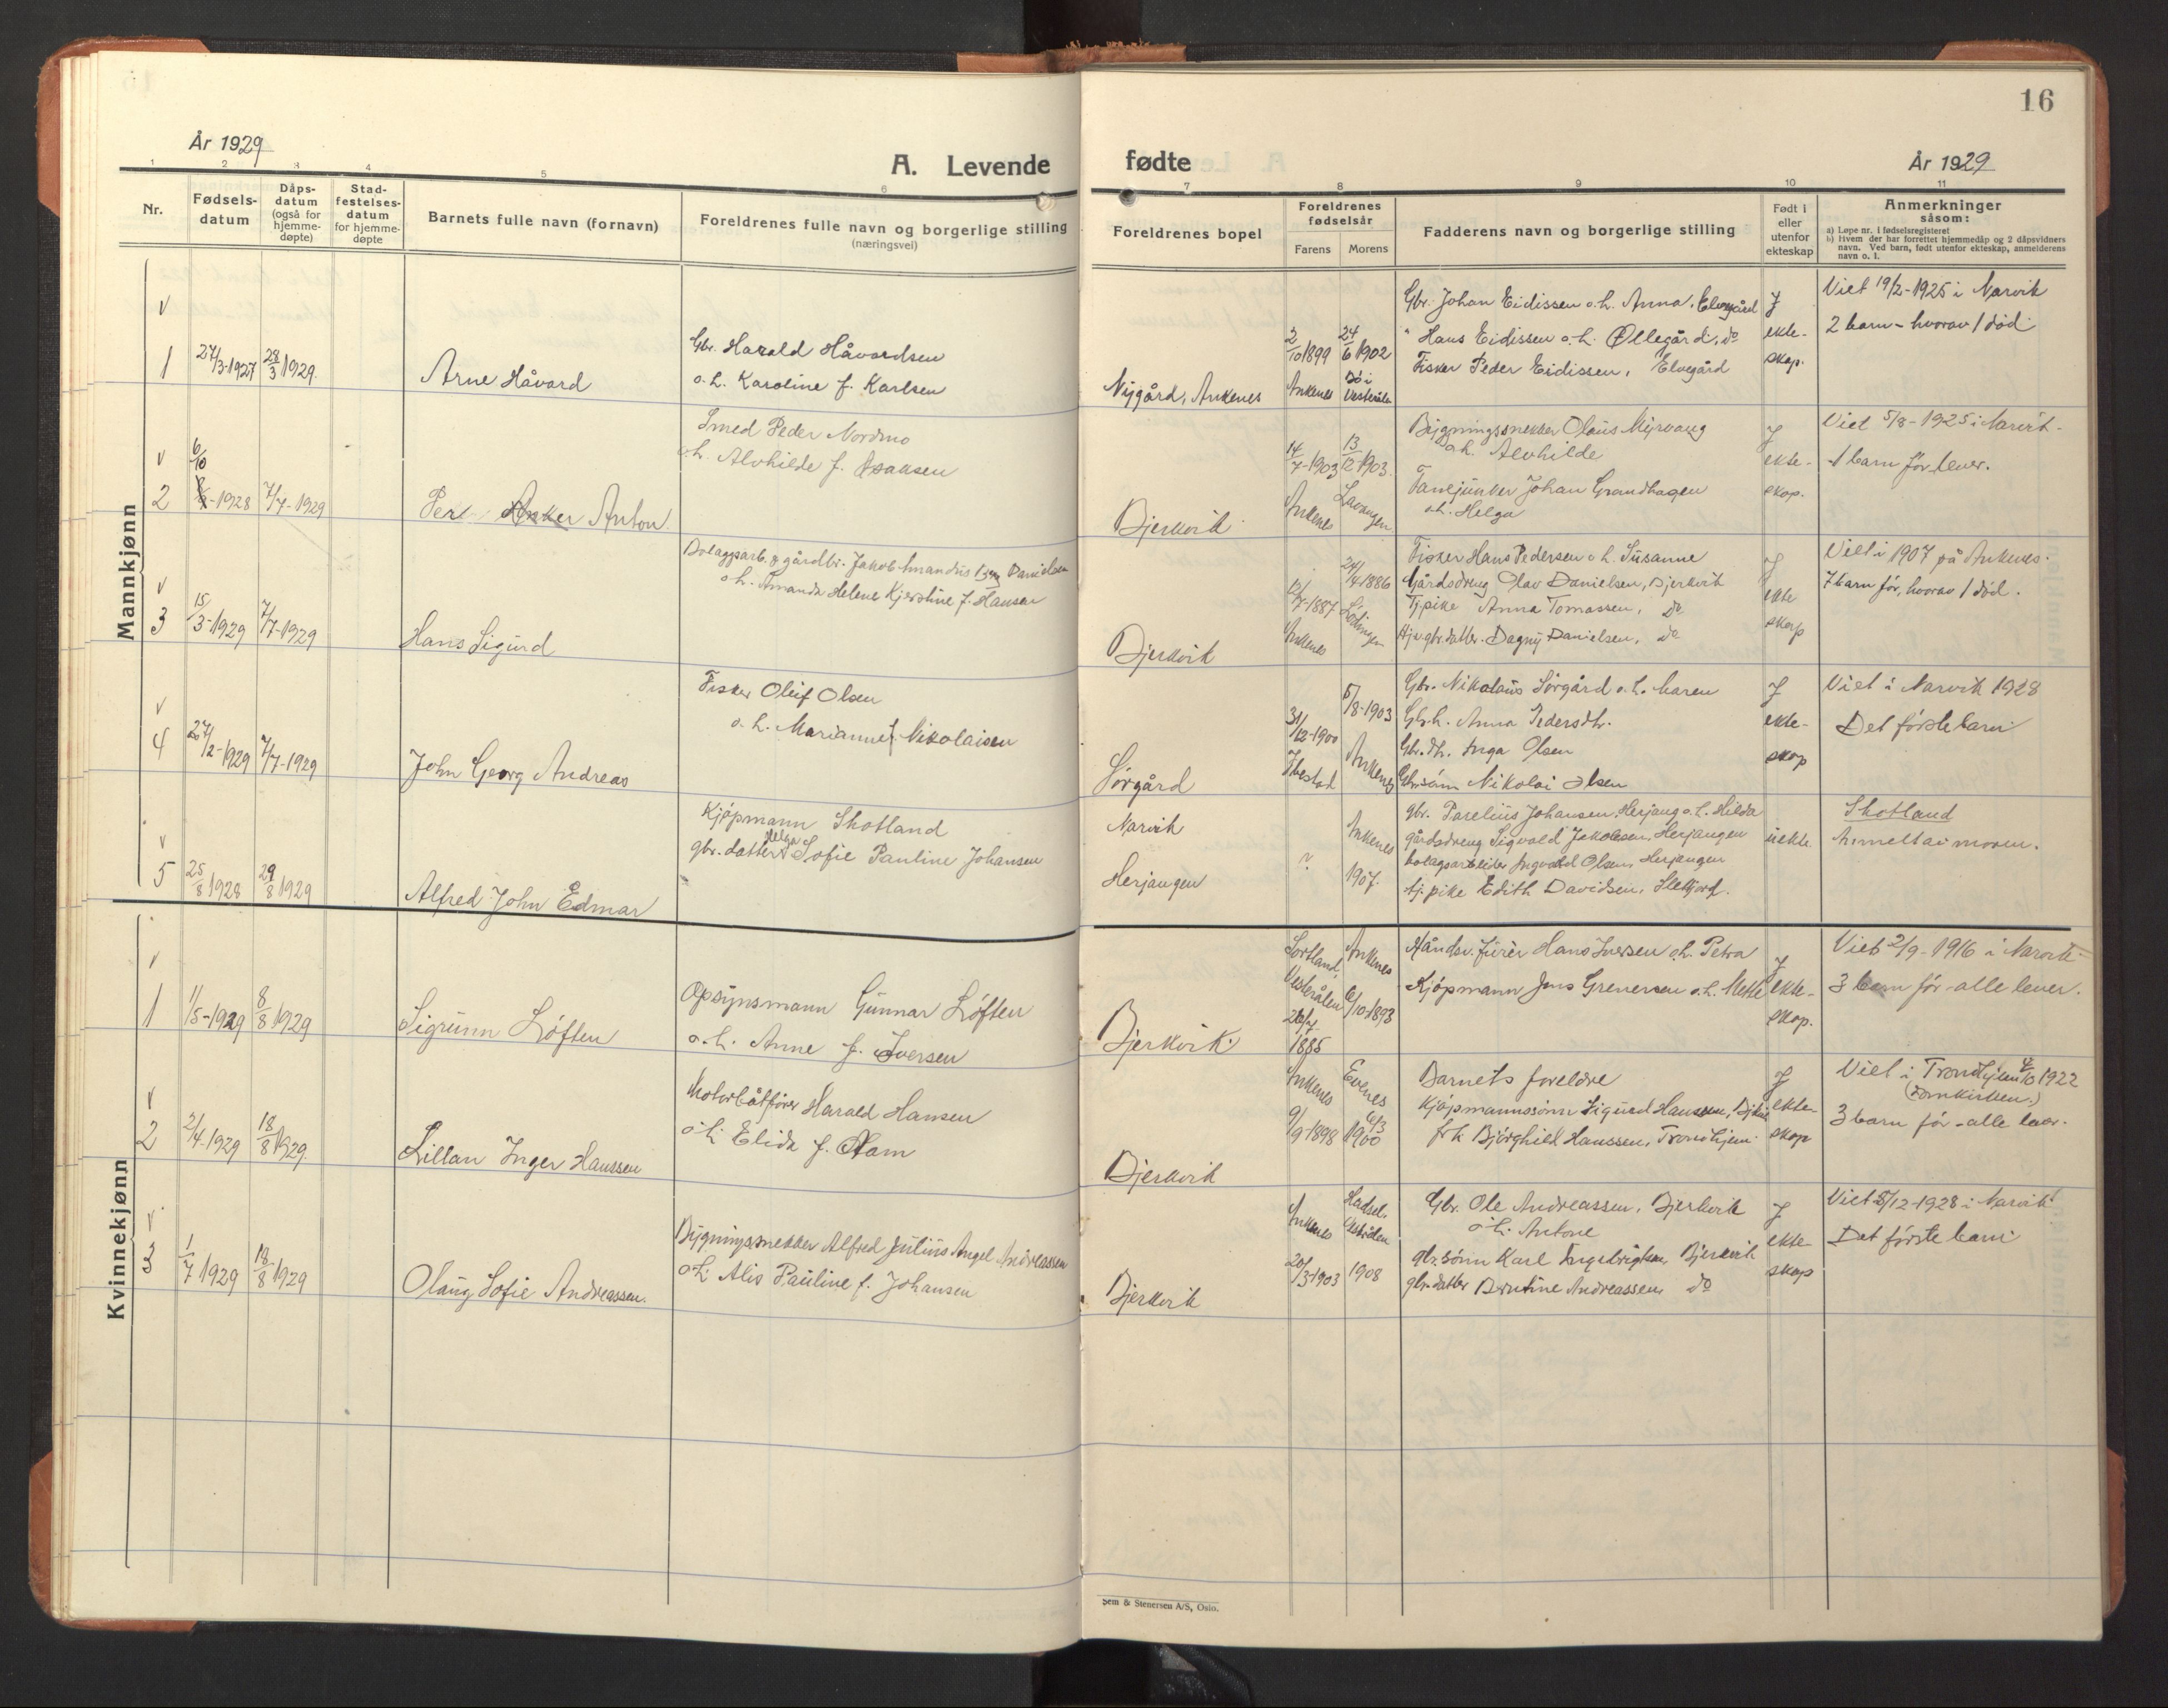 16
År 1929
A. Levende
fødte
År 1929
1 2 3 4 5 6 7 8 9 10 11
Nr.
Fødsels-
datum
Dåps-
datum
(også for
hjemme-
døpte)
Stad-
festelses-
datum
for hjemme-
døpte
Barnets fulle navn (fornavn)
Foreldrenes fulle navn og borgerlige stilling
(næringsvei)
Foreldrenes bopel
Foreldrenes
fødselsår
Farens
Morens
Fadderens navn og borgerlige stilling
Født i
eller
utenfor
ekteskap
Anmerkninger
såsom:
a) Løpe nr. i fødselsregisteret
b) Hvem der har forrettet hjemmedåp og 2 dåpsvidners
navn. Ved barn, født utenfor ekteskap, anmelderens
navn o. l.
Mannkjønn
v
1
27/3-1927
28/3 1929.
Arne Håvard
Gbr. Harald Håvardsen
o. h. Karoline f. Karlsen
Nygård, Ankenes
2/10 1899
Ankenes
24/6 1902
Bø i
Vesterålen
Gbr. Johan Eidissen o. h. Anna, Elvegård
" Hans Eidissen o. h. Ollegård, do
Fisker Peder Eidissen, Elvegård
I
ekte-
skap.
Viet 19/2-1925 i Narvik
2 barn - hvorav 1 død
v
2
6/10
-1928
7/7-1929
Per Anker Anton
Smed Peder Nordmo
o. h. Alvhilde f. Isaksen
Bjerkvik
14/7-1903
Ankenes
13/12 1903.
Lavangen
Bygningssnekker Olaus Myrvang
o. h. Alvhilde
Fanejunker Johan Grandhagen
o. h. Helga
I
ekte-
skap.
Viet 5/8-1925 i Narvik.
1 barn før lever.
v
3
15/3-1929
7/7-1929
Hans Sigurd
Bolagsarb. & gårdbr. Jakob Amandus Danielsen
o. h. Amanda Helene Kjerstine f. Hansen
Bjerkvik
12/7-1887
Ankenes
24/4 1886
Lødingen
Fisker Hans Pedersen o. h. Susanne
Gårdsdreng Olav Danielsen, Bjerkvik
Tj.pike Anna Tomassen, do
Hj.v. gbr.datter. Dagny Danielsen, do
I
ekte
skap
Viet i 1907 på Ankenes.
7 barn før, hvorav 1 død.
v
4
27/2-1929
7/7-1929
John Georg Andreas
Fisker Oleif Olsen
o. h. Marianne f. Nikolaisen
Sørgård
31/12-1900
Ibestad
5/8-1903
Ankenes
Gbr. Nikolaus Sørgård o. h. Maren
Gbr.h. Anna Pedersdtr.
Gbr.dtr. Inga Olsen
Gbr.sønn Nikolai Olsen
I
ekte-
skap
Viet i Narvik 1928
Det første barn
v
5
25/8 1928
29/8 1929
Alfred John Edmar
Kjøpmann Skotland
gbr. datter Helga Sofie Pauline Johansen
Narvik
Herjangen
?
Ankenes
1907.
gbr. Parelius Johansen, Herjang o. h. Hilda
gårdsdreng Sigvald Jakobsen, Herjangen
bolagsarbeider Ingvald Olsen, Herjangen
tj.pike Edith Davidsen,
uekte
Skotland
Anmeldt av moren.
Kvinnekjønn
v
1
1/5-1929
8/8 1929
Sigrunn Løften
Opsynsmann Gunnar Løften
o. h. Anne f. Iversen
Bjerkvik.
Sortland,
Vesterålen
26/7
1885
Ankenes
6/10-1893
Håndv. fører Hans Iversen o.h. Petra
Kjøpmann Jens Grenersen o. h. Mette
I
ekte-
skap.
Viet 2/9-1916 i Narvik
3 barn før - alle lever.
v
2
2/4-1929
18/8 1929.
Lillan Inger Hanssen
Motorbåtfører Harald Hansen
o. h. Elida f. Olam
Bjerkvik
Ankenes
9/9-1898
Evenes
6/3
1900
Barnets foreldre
Kjøpmannssønn Sigurd Hanssen, Bjkvik
frk. Bjørghild Hanssen, Trondhjem.
I
ekte-
skap
Viet i Trondhjem 4/10 1922
(Domkirken.)
3 barn før - alle lever.
v
3
1/7 1929
18/8 1929
Olaug Sofie Andreassen.
Bygningssnekker Alfred Julius Angel Andreassen
o. h. Alis Pauline f. Johansen
Bjerkvik
Ankenes
20/3-1903
Hadsel,
Vesterålen
1908
Gbr. Ole Andreassen, Bjerkvik
o. h. Antone
gbr. sønn Karl Ingebrigtsen, Bjerkvik
gbr. datter Berntine Andreassen, do
I
ekte-
skap
Viet 8/12-1928 i Narvik
Det første barn
Sem & Stenersen A/S, Oslo.